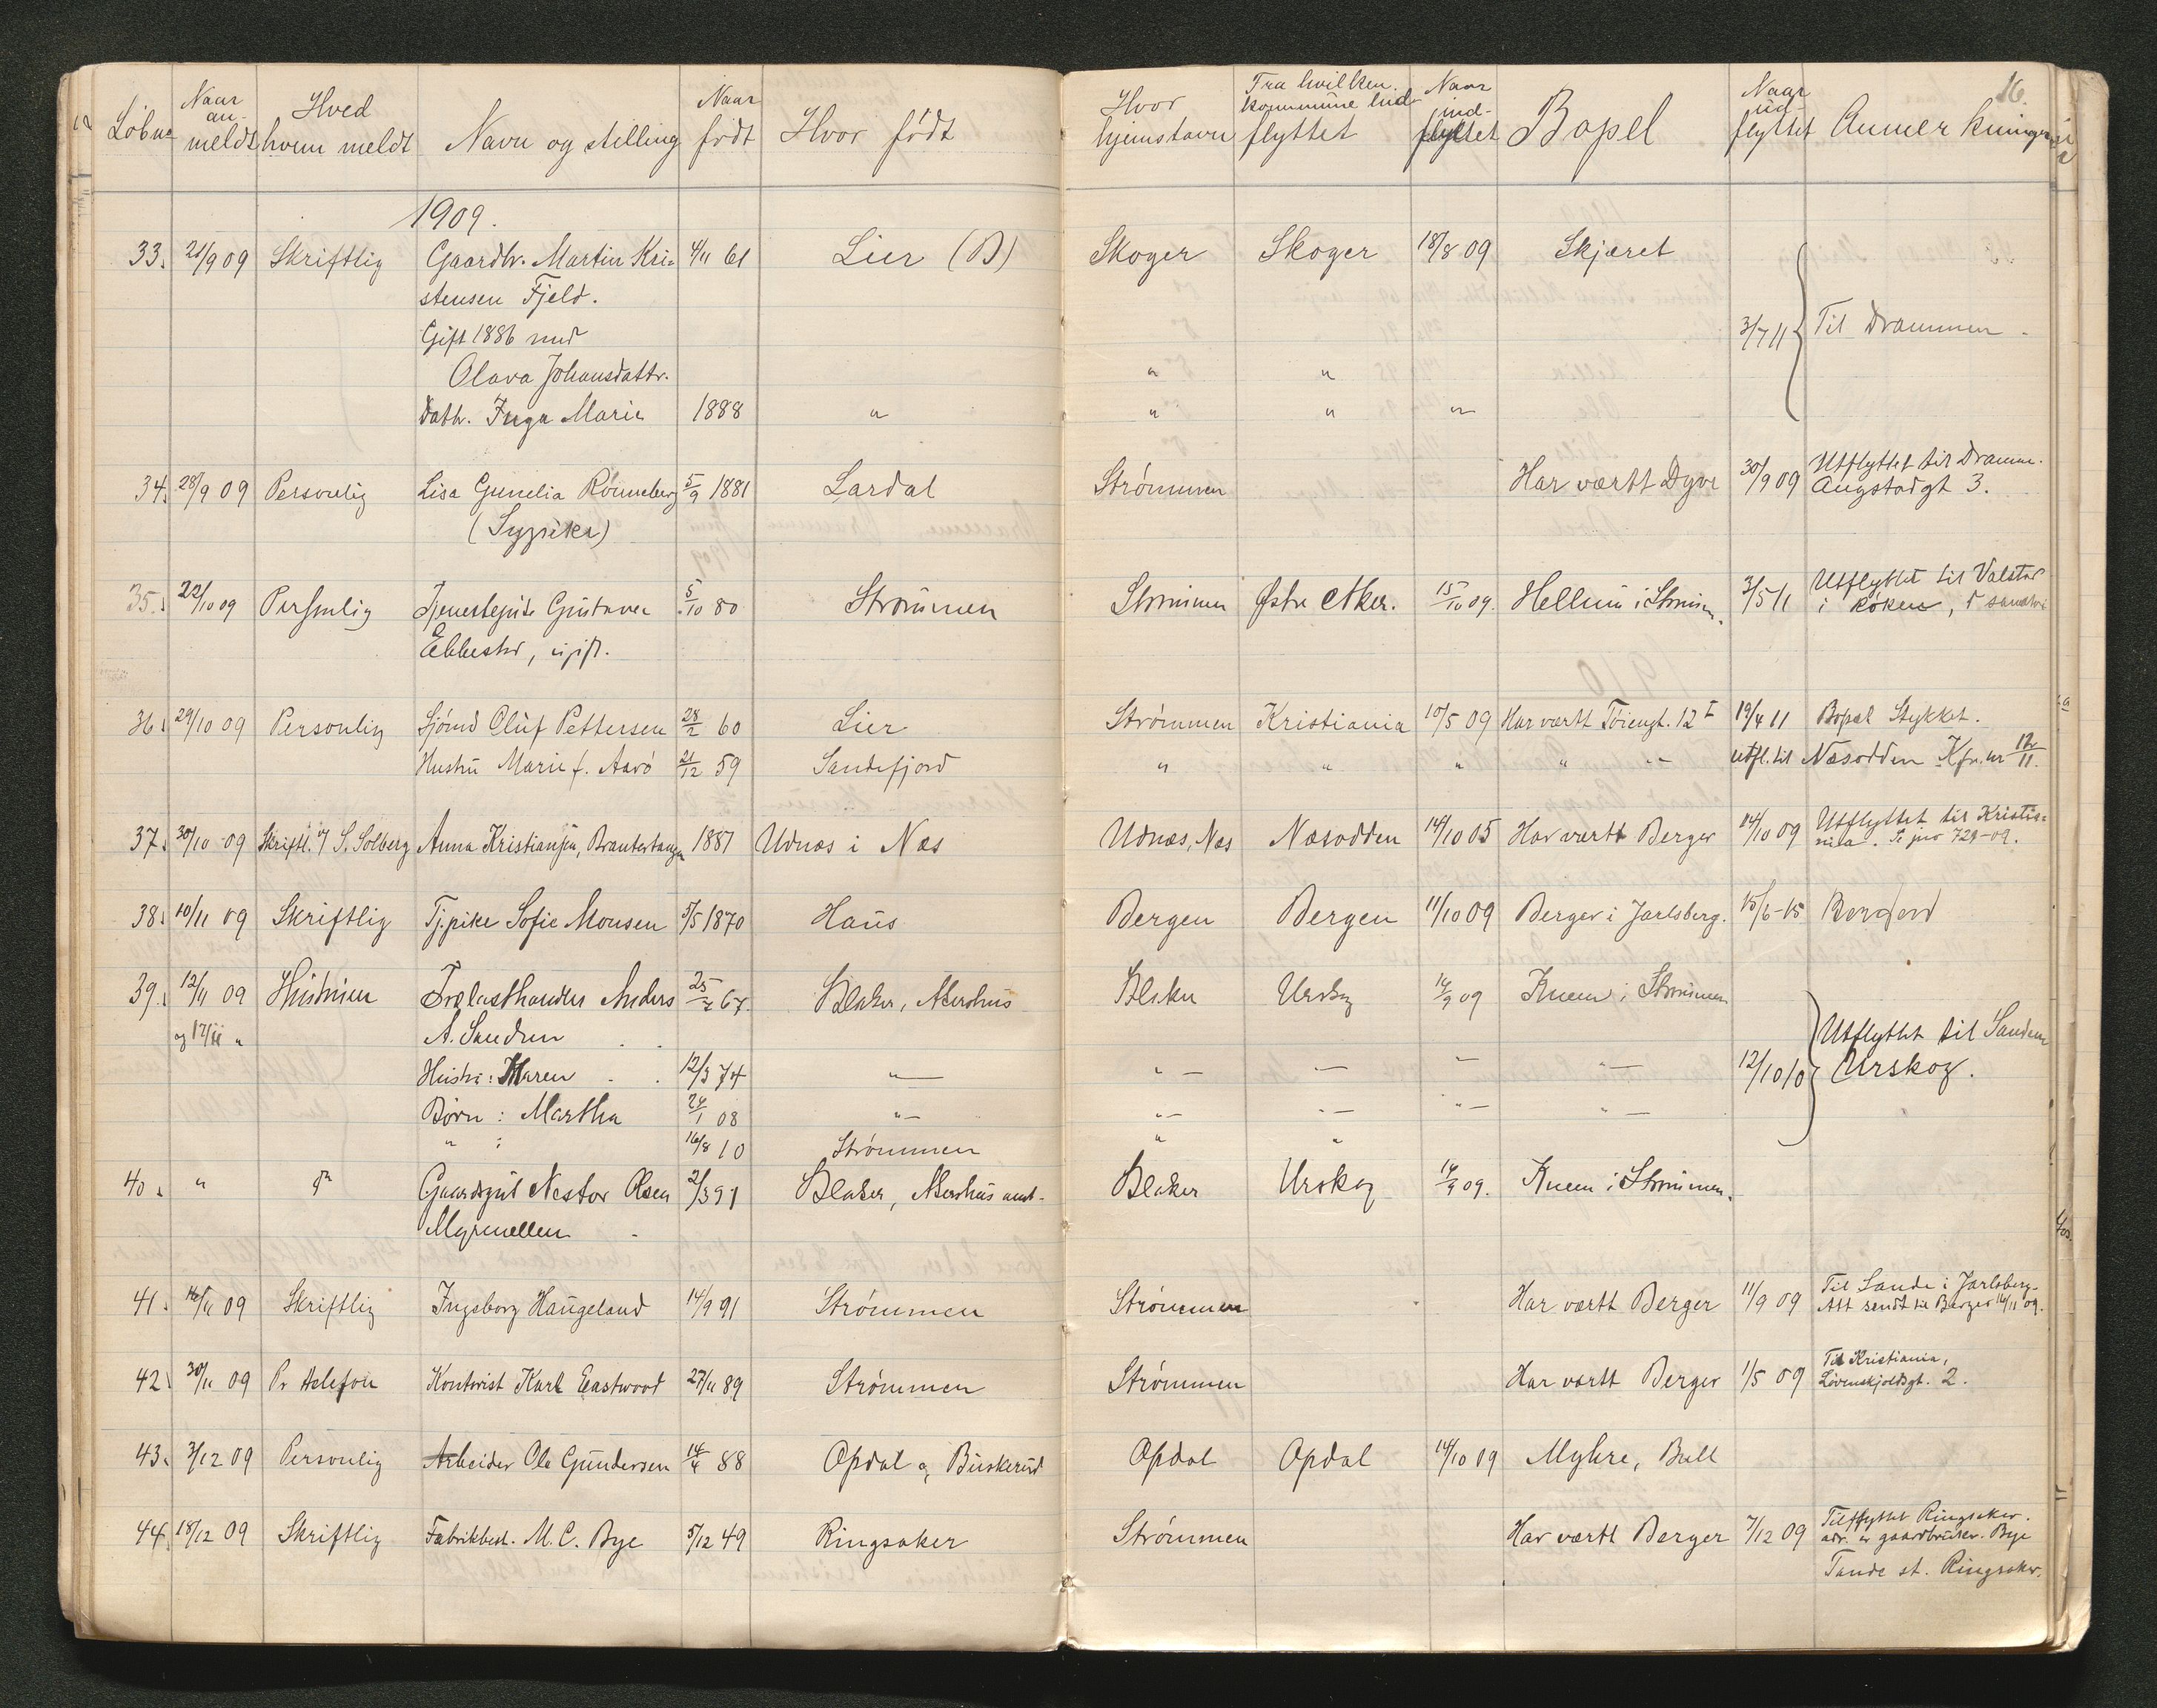 16.
Løbnr Naar anmeldt Hved hvem meldt Navn og stilling Naar født Hvor født Hvor hjemstavn Fra hvilken kommune indflyttet Naar indflyttet Bopel Naar udflyttet Anmerkninger
1909.
33. 21/9 09 Skriftlig Gaardbr. Martin Kri- 4/11 61 Lier (B) Skoger Skoger 18/8 09 Skjæret
stensen Fjeld.
Gift 1886 med 3/7 11 Til Drammen -
Olava Johansdattr. " "
Dattr. Inga Marie 1888 " " " "
34. 28/9 09 Personlig Lisa Gunelia Rønneberg 5/9 1881 Lardal Strømmen Har vært Dyve 30/9 09 Utflyttet til Dramm.
(Sypike) Augstadgt 3.
35. 22/10 09 Personlig Tjenestepike Gustava 5/10 80 Strømmen Strømmen Østre Aker. 15/10 09. Hellum i Strømm. 3/5 11 Utflyttet til Valstad
Ebbestad, ugift. i Røken,
36. 29/10 09 Personlig Sjømd Oluf Pettersen 28/2 60 Lier Strømmen Kristiania 10/5 09 Har vært Tøiengt. 12 I 19/4 11 Bopæl Stykket.
Hustru Marie f. Aarø 21/12 59 Sandefjord " " " " " utfl. til Næsodden Kfr. nr 12/11.
37. 30/10 09 Skriftl. v/ S. Solberg Anna Kristiansen, Brantertangen 1881 Udnæs i Næs Udnæs, Næs Næsodden 14/10 05 Har vært Berger 14/10 09 Utflyttet til Kristia-
nia. Se jnr 729-09.
38. 10/11 09 Skriftlig Tj.pike Sofie Monsen 5/5 1870 Haus Bergen Bergen 11/10 09 Berger i Jarlsberg. 15/6-15
39. 12/11 09 Hustruen Trælasthandler Anders 25/2 67. Blaker, Akershus Blaker Urskog 14/9 09 Knem i Strømmen
og 17/11 " A. Sandrun Utflyttet til Sandem
Hustru: Maren 12/3 74 " " 12/10 10 Urskog.
Børn: Martha 24/1 08 " "
" : 16/8 10 Strømmen " "
40. " do Gaardsgut Nestor Olsen 2/3 91 Blaker, Akershus amt. Blaker Urskog 14/9 09. Knem i Strømmen.
Myrmellem
41. 16/11 09 Skriftlig Ingeborg Haugeland 14/9 91 Strømmen Strømmen Har vært Berger 11/9 09 Til Sande i Jarlsberg.
Att sendt til Berger 16/11 09.
42. 30/11 09 Pr telefon Kontorist Karl Eastwood 27/11 89 Strømmen Strømmen Har vært Berger 1/5 09 Til Kristiania,
Løvenskjoldsgt. 2.
43. 3/12 09 Personlig Arbeider Ole Gundersen 14/4 88 Opdal, Buskerud Opdal Opdal 14/10 09 Myhre, Bull
44. 18/12 09 Skriftlig Fabrikbest. M. C. Bye 5/12 49 Ringsaker Strømmen Har vært Berger 7/12 09 Tilflyttet Ringsaker.
adr. er gaardbruker Bye
Tande st. Ringsaker.